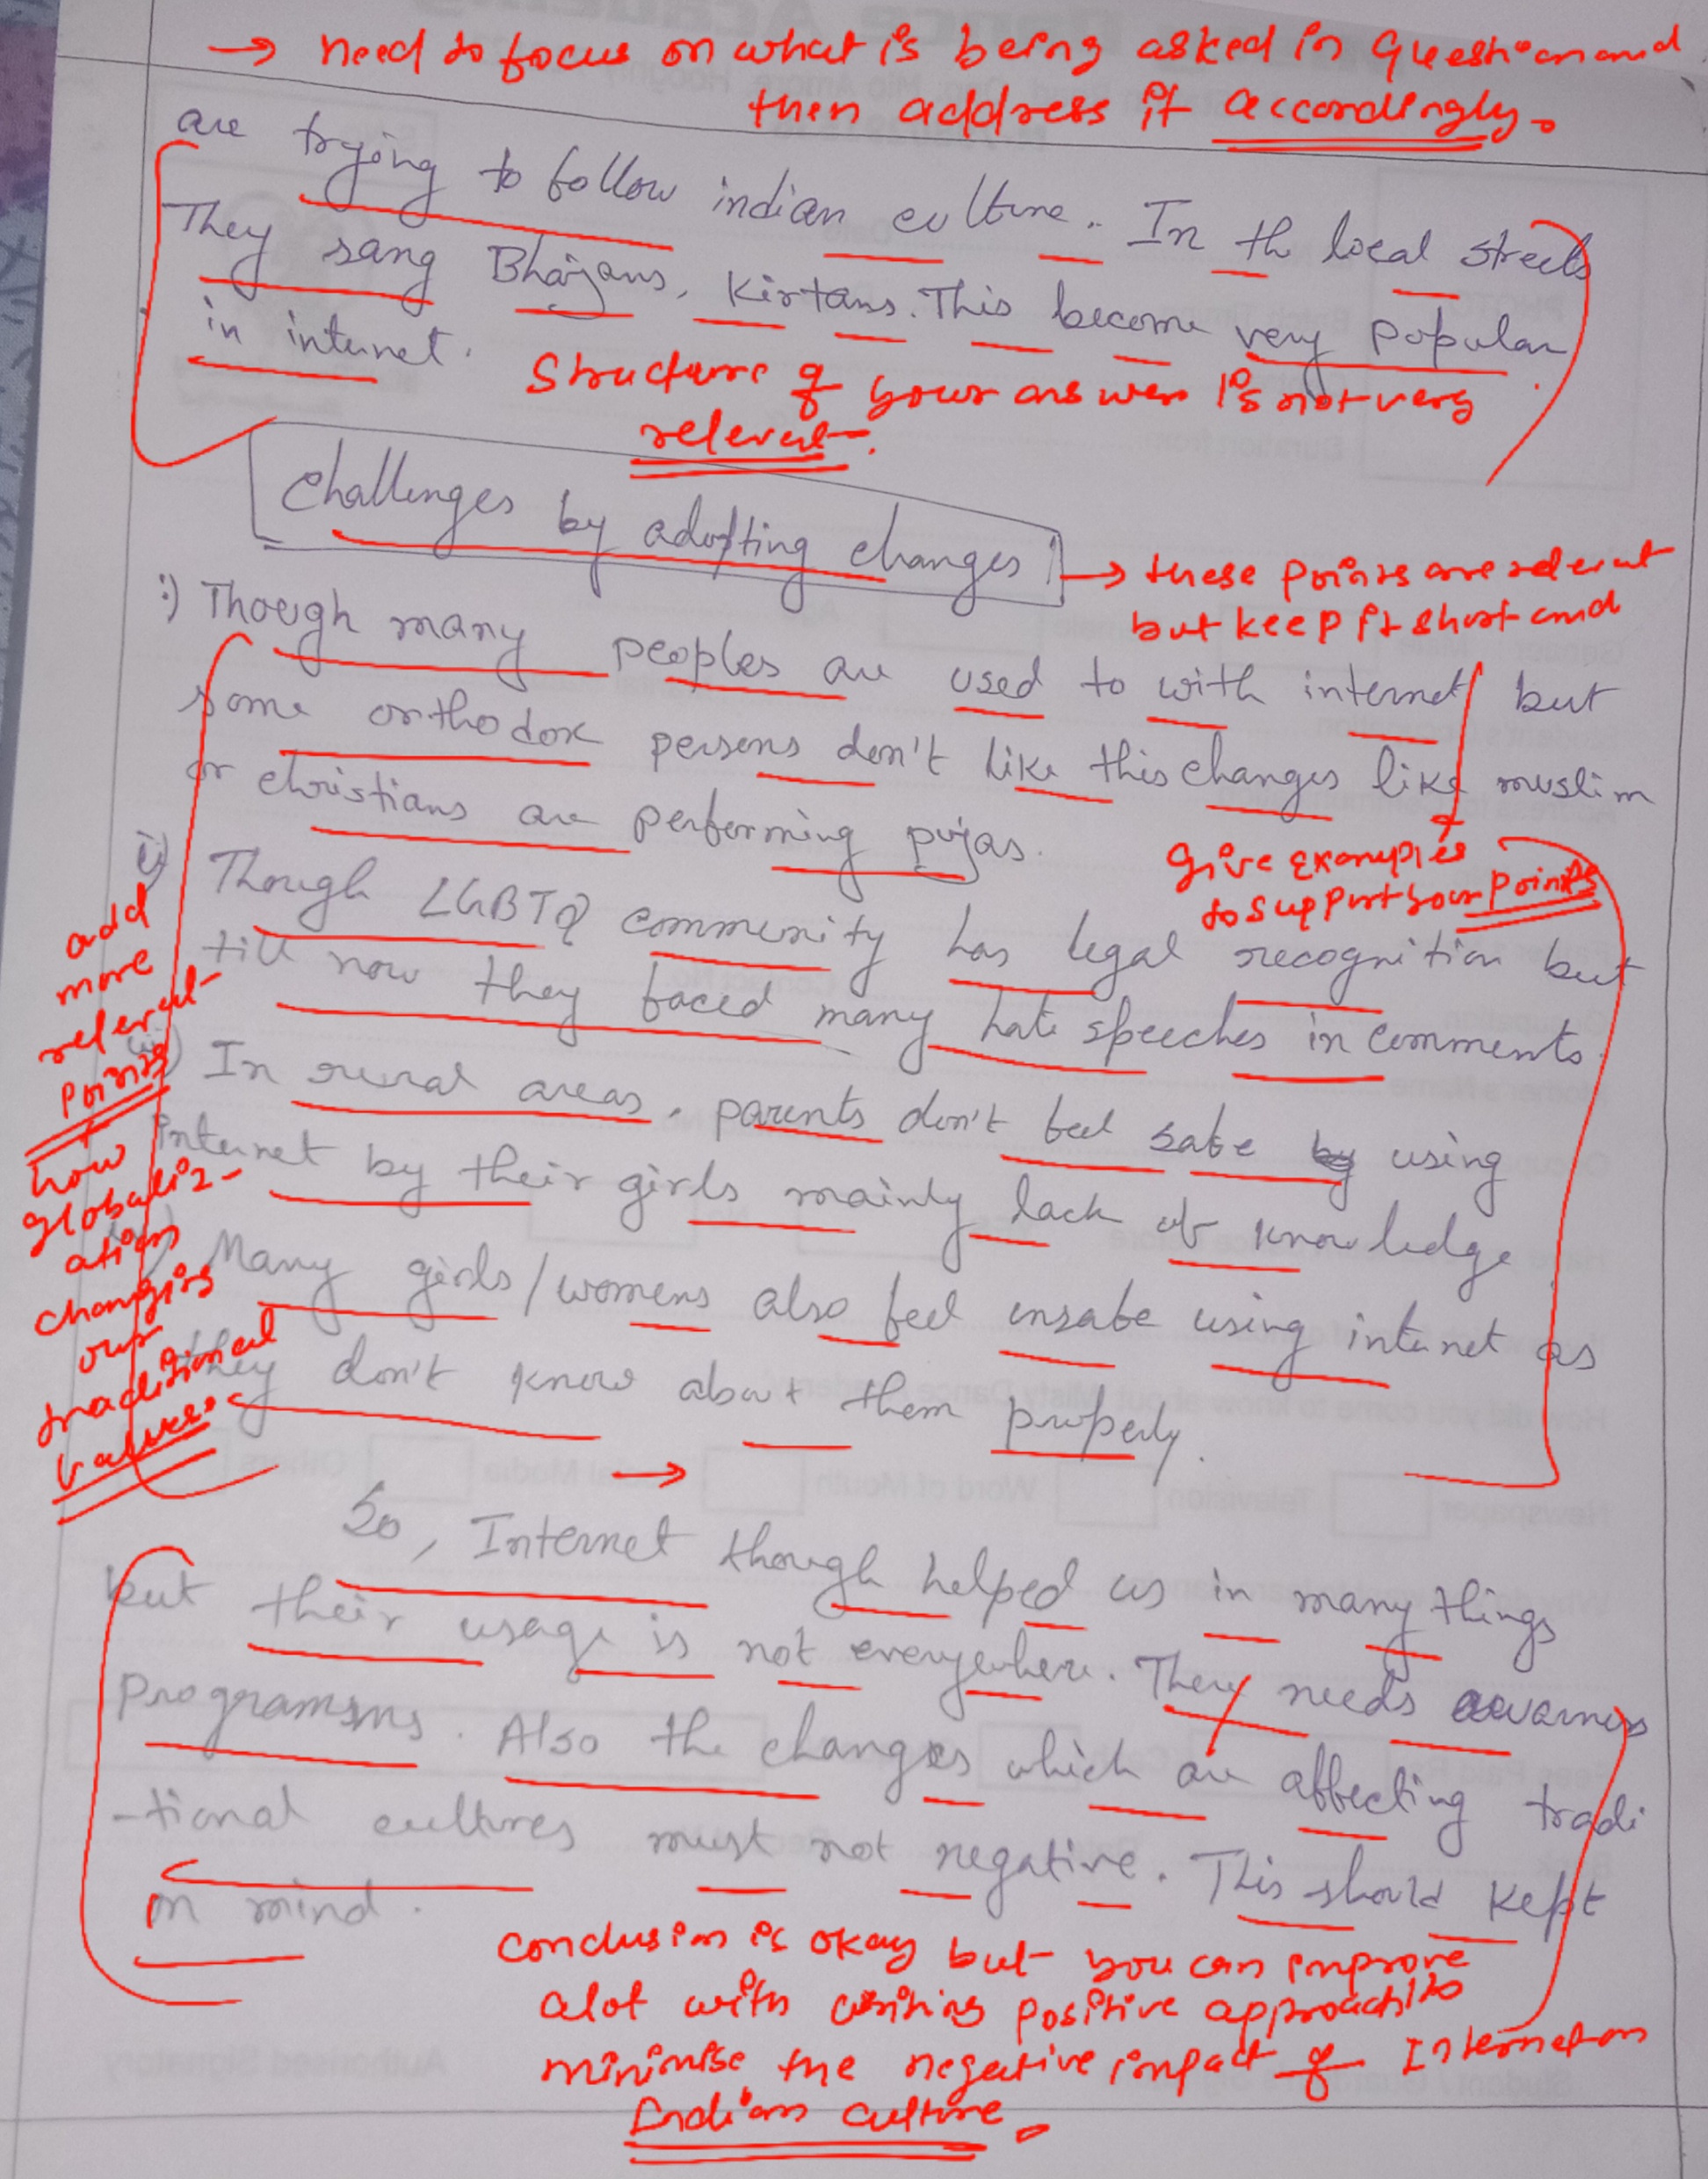 → need to focus on what is being asked in Question and
then address it accordingly.
are trying to follow indian culture. In th local streets
They sang Bhajans, Kirtans. This become very popular
in internet.
Structure of your answer is not very
relevant.
Challenges by adopting changes
→ these points are relevant
but keep it short and
give examples
to support your points
i) Though many peoples are used to with internet but
some orthodox persons don't like this changes like muslim
or christians are performing pujas.
ii) Though LGBTQ community has legal recognition but
till now they faced many hate speeches in comments.
iii) In rural areas, parents don't feel safe by using
internet by their girls mainly lack of knowledge.
Many girls/womens also feel unsafe using internet as
they don't know about them properly.
add
more
relevant
points
how
globaliz-
ation
changing
our
traditional
values.
→
So, Internet though helped us in many things
but their usage is not everywhere. There needs awarness
programsms. Also the changes which are affecting tradi
-tional cultures must not negative. This should kept
in mind.
Conclusion is okay but you can improve
alot with writing positive approach to
minimise the negative impact of Internet on
Indian culture.
Authorised Signatory